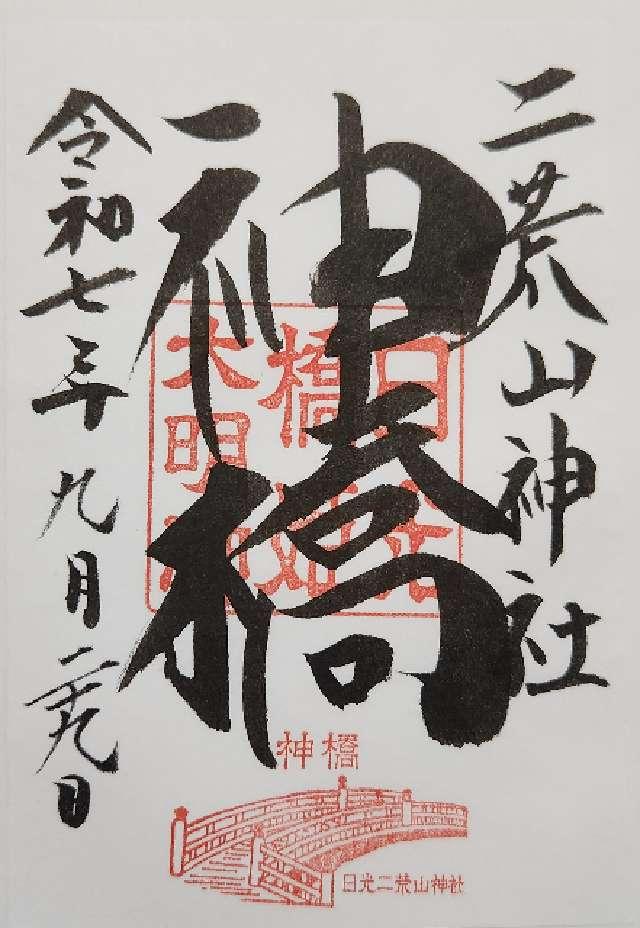 二荒山神社
神橋
令和七年九月二十九日
日光
橋姫
大明神
神橋
日光二荒山神社